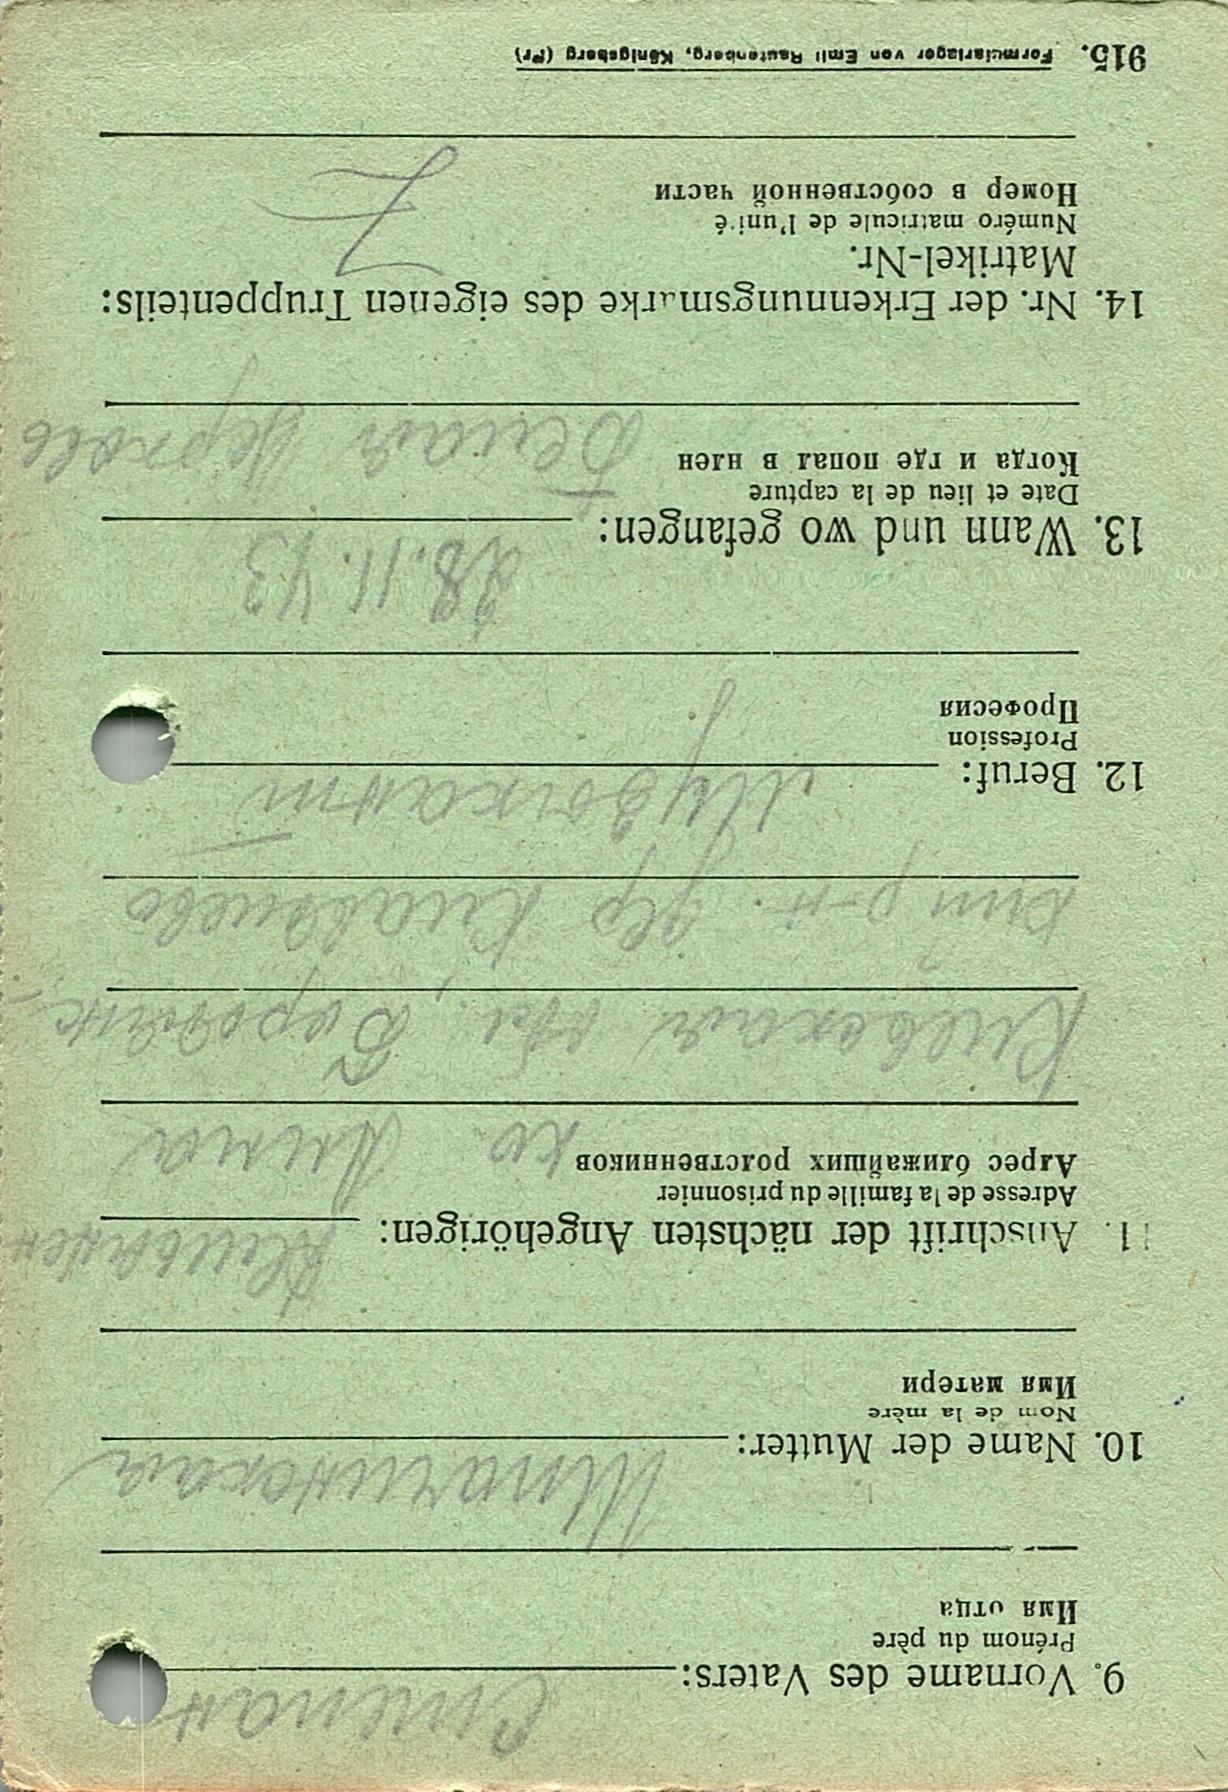 9. Vorname des Vaters: Степан
Prénom du père
Имя отца
10. Name der Mutter:
Nom de la mère
Имя матери
11. Anschrift der nächsten Angehörigen:
Adresse de la famille du prisonnier
Адрес ближайших родственников
ко Анна
Киевская обл., Бородянс-
кий р-н. дер
12. Beruf: Музыкант
Profession
Профессия
13. Wann und wo gefangen: 28.11.43
Date et lieu de la capture
Когда и где попал в плен
Белая Церковь
14. Nr. der Erkennungsmarke des eigenen Truppenteils:
Matrikel-Nr.
Numéro matricule de l'unité
Номер в собственной части
915. Formularlager von Emil Rautenberg, Königsberg (Pr)